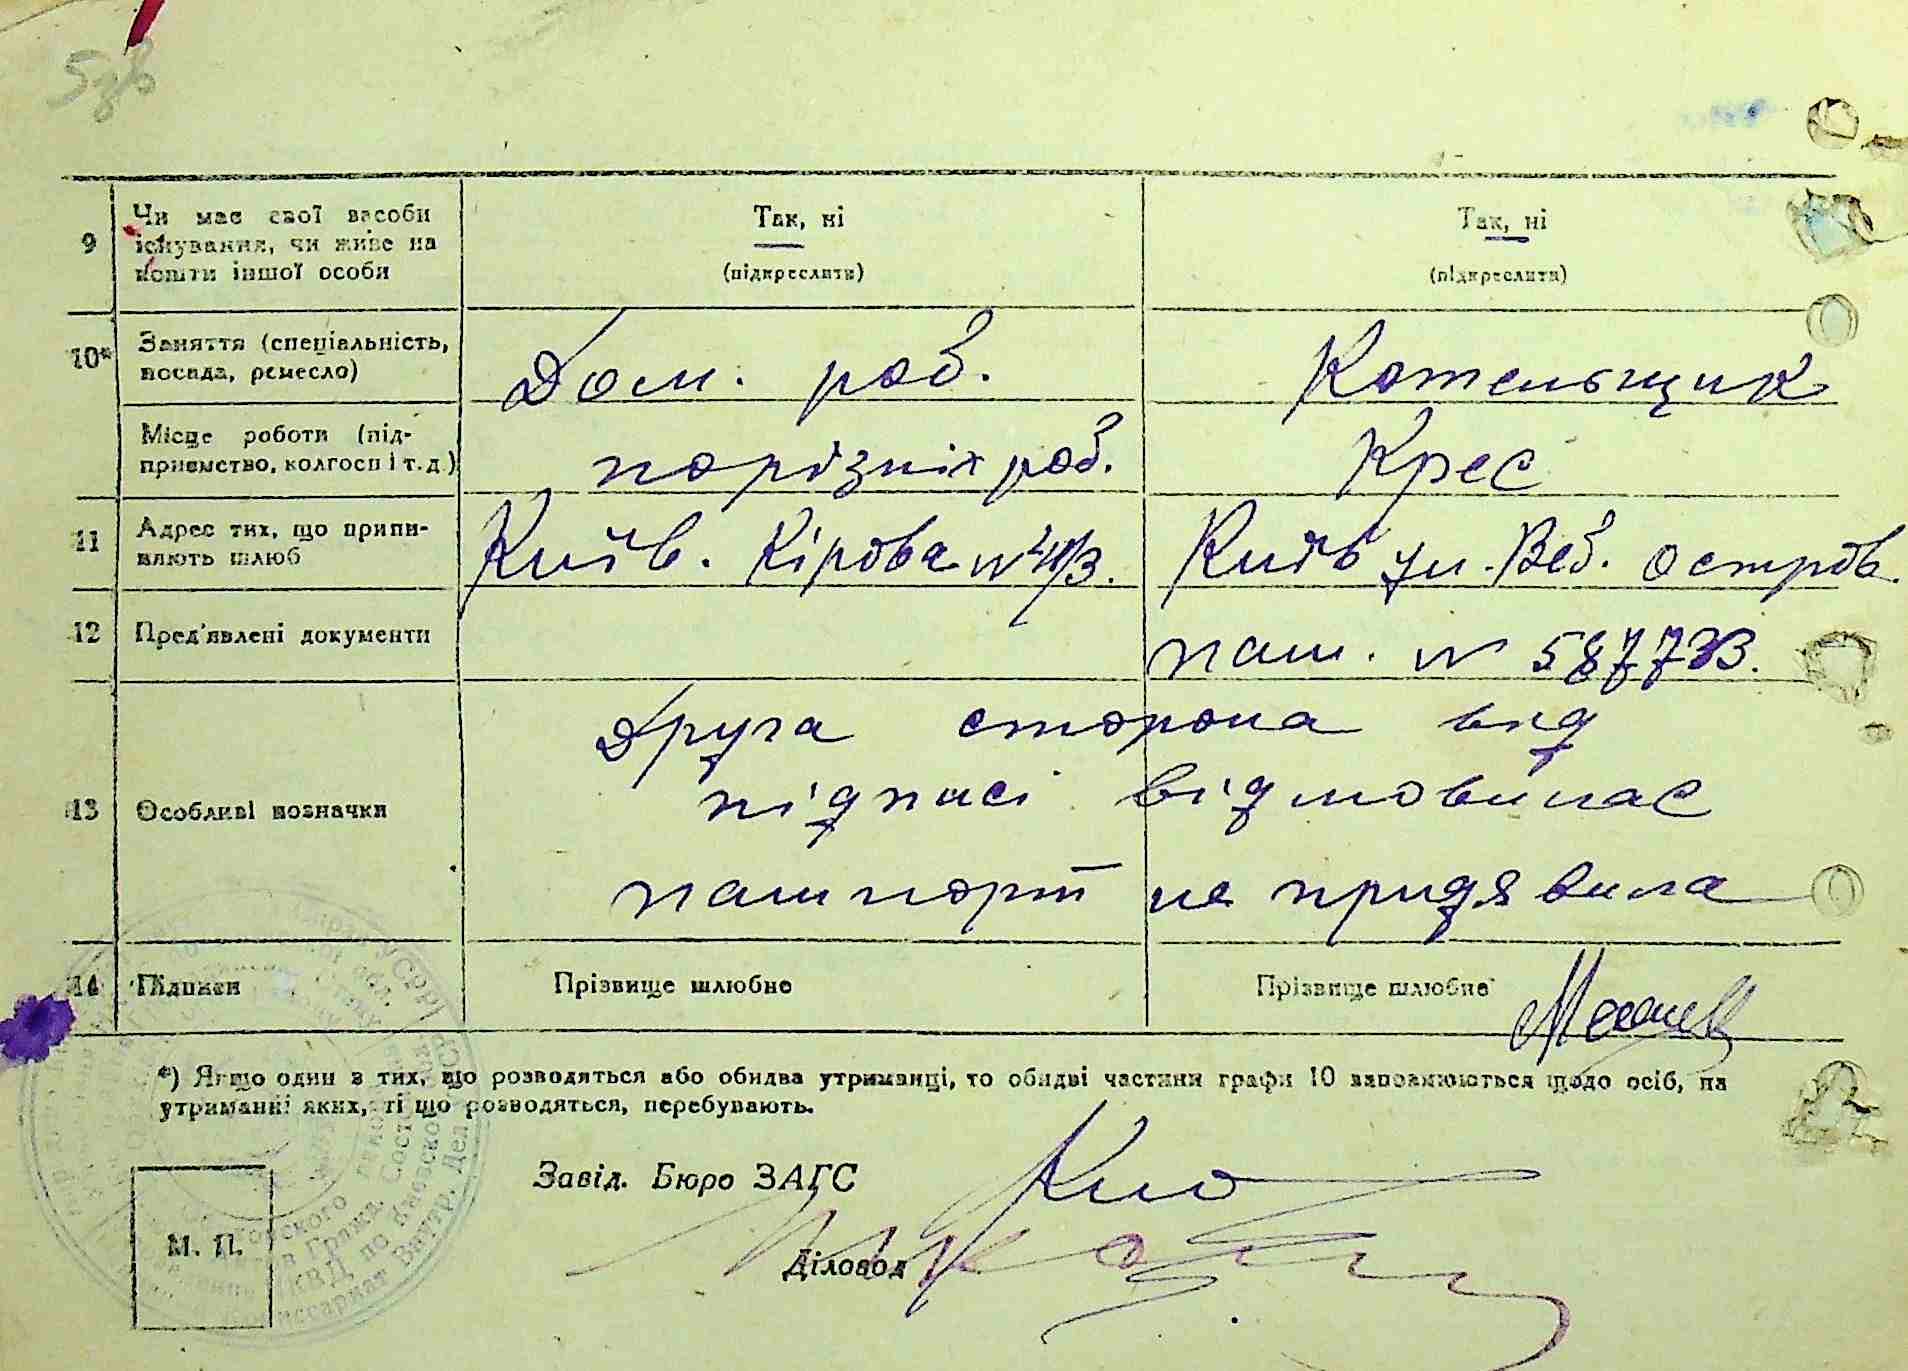 9 Чи має свої засоби існування, чи живе на кошти іншої особи
Так, ні
(підкреслити)
Так, ні
(підкреслити)
10* Заняття (спеціальність, посада, ремесло)
Дом. роб.
Котельщик
Місце роботи (підприємство, колгосп і т. д.)
порізніх роб.
Крес
11 Адрес тих, що припиняють шлюб
Київ. Кірова №
Київ ул. Вед. Остров.
12 Пред'явлені документи
паш. № 587733.
13 Особливі позначки
Друга сторона від
підписі відмовилас
пашпорт не придявила
14 Підписи
Прізвище шлюбне
Прізвище шлюбне
*) Якщо один з тих, що розводяться або обидва утриманці, то обидві частини графи 10 заповнюються щодо осіб, на
утриманні яких, ті що розводяться, перебувають.
Завід. Бюро ЗАГС
Діловод
М. П.